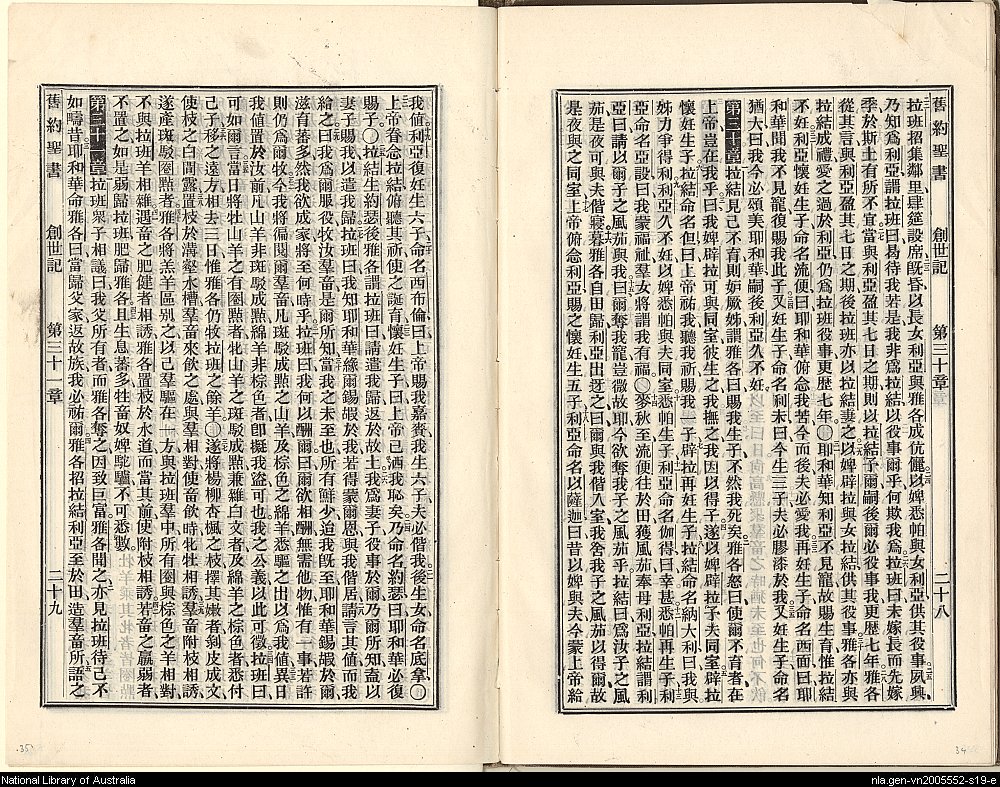 舊約聖書 創世記 第三十章 二十八
拉班招集鄰里肆筵設席既昏以長女利亞與雅各成伉儷以婢悉帕與女利亞供其役事夙興
乃知爲利亞謂拉班曰曷待我若是我非爲拉結以役事爾乎何欺我爲拉班曰未嫁長而先嫁
季於斯土有所不宜當與利亞盈其七日之期則以拉結予爾嗣後爾必役事我更歷七年雅各
從其言與利亞盈其七日之期後拉班亦以拉結妻之以婢辟拉與女拉結供其役事雅各亦與
拉結成禮愛之過於利亞仍爲拉班役事更歷七年〇耶和華知利亞不見寵故賜生育惟拉結
不妊利亞懷妊生子命名流便曰耶和華俯念我苦今而後夫必愛我再妊生子命名西面曰耶
和華聞我不見寵復賜我此子又妊生子命名利未曰今生三子夫必膠漆於我又妊生子命名
猶大曰我今必頌美耶和華嗣後利亞久不妊
第三十章 拉結見己不育則妒厥姊謂雅各曰賜我生子不然我死矣雅各怒曰使爾不育者在
上帝豈在我乎曰我婢辟拉可與同室彼生之我撫之我因以得子遂以婢辟拉予夫同室辟拉
懷妊生子拉結命名但曰上帝祐我聽我祈賜我一子辟拉再妊生子拉結命名納大利曰我與
姊力爭得利利亞久不妊以婢悉帕與夫同室悉帕生子利亞命名伽得曰幸甚悉帕再生子利
亞命名亞設曰我蒙福祉羣女將謂我有福〇麥秋至流便往於田獲風茄奉母利亞拉結謂利
亞曰請以爾子之風茄與我曰爾奪我寵豈微故耶今欲奪我子之風茄乎拉結曰爲汝子之風
茄是夜可與夫偕寢暮雅各自田歸利亞出迓之曰爾與我偕入室我舍我子之風茄以得爾故
是夜與之同室上帝俯念利亞賜之懷妊生五子利亞命名以薩迦曰昔以婢與夫今蒙上帝給
我値利亞復妊生六子命名西布倫曰上帝賜我嘉賚我生六子夫必偕我後生女命名底拿〇
上帝眷念拉結俯聽其祈使之誕育懷妊生子曰上帝已洒我恥矣乃命名約瑟曰耶和華必復
賜子〇拉結生約瑟後雅各謂拉班曰請遣我歸返於故土我爲妻子役事於爾乃爾所知盍以
妻子賜我以遣我歸拉班曰我知耶和華緣爾錫嘏於我若得蒙爾恩與我偕居請言其値而我
給之曰我爲爾服役牧汝羣畜是爾所知當我之未至也所有鮮少迨我既至耶和華錫嘏於爾
滋育蕃多然我欲成家將至何時乎拉班曰我何以酬爾曰爾欲相酬無需他物惟有一事若許
則仍爲爾牧今我將徧閱爾羣畜凡斑駁成點之山羊及棕色之綿羊悉驅之出以爲我値異日
我値置於汝前凡山羊非斑駁成點綿羊非棕色者卽擬我盜可也我之公義以此可徵拉班曰
可如爾言當日將牡山羊之有圈點者牝山羊之斑駁成點兼雜白文者及綿羊之棕色者悉付
己子移之遠方相去三日惟雅各仍牧拉班之餘羊〇遂將楊柳杏楓之枝擇其嫩者剝皮成文
使枝之白間露置枝於溝壑水槽羣畜來飲之處與羣相對使畜飲時牝牡相誘羣畜附枝相誘
遂產斑駁圈點者雅各將羔羊區別之以己羣驅在一方與拉班羣中所有圈與棕色之羊相對
不與拉班羊相雜遇畜之肥健者相誘雅各置枝於水道而當其前使附枝相誘若畜之羸弱者
不置之如是弱歸拉班肥歸雅各且生息蕃多牲畜奴婢駝驢不可悉數
第三十一章 拉班衆子相議曰我父所有者而雅各奪之因致巨富雅各聞之亦見拉班待己不
如疇昔耶和華命雅各曰當歸父家返故族我必祐爾雅各招拉結利亞至於田造羣畜所語之
舊約聖書 創世記 第三十一章 二十九
35
34
National Library of Australia
nla.gen-vn2005552-s19-e